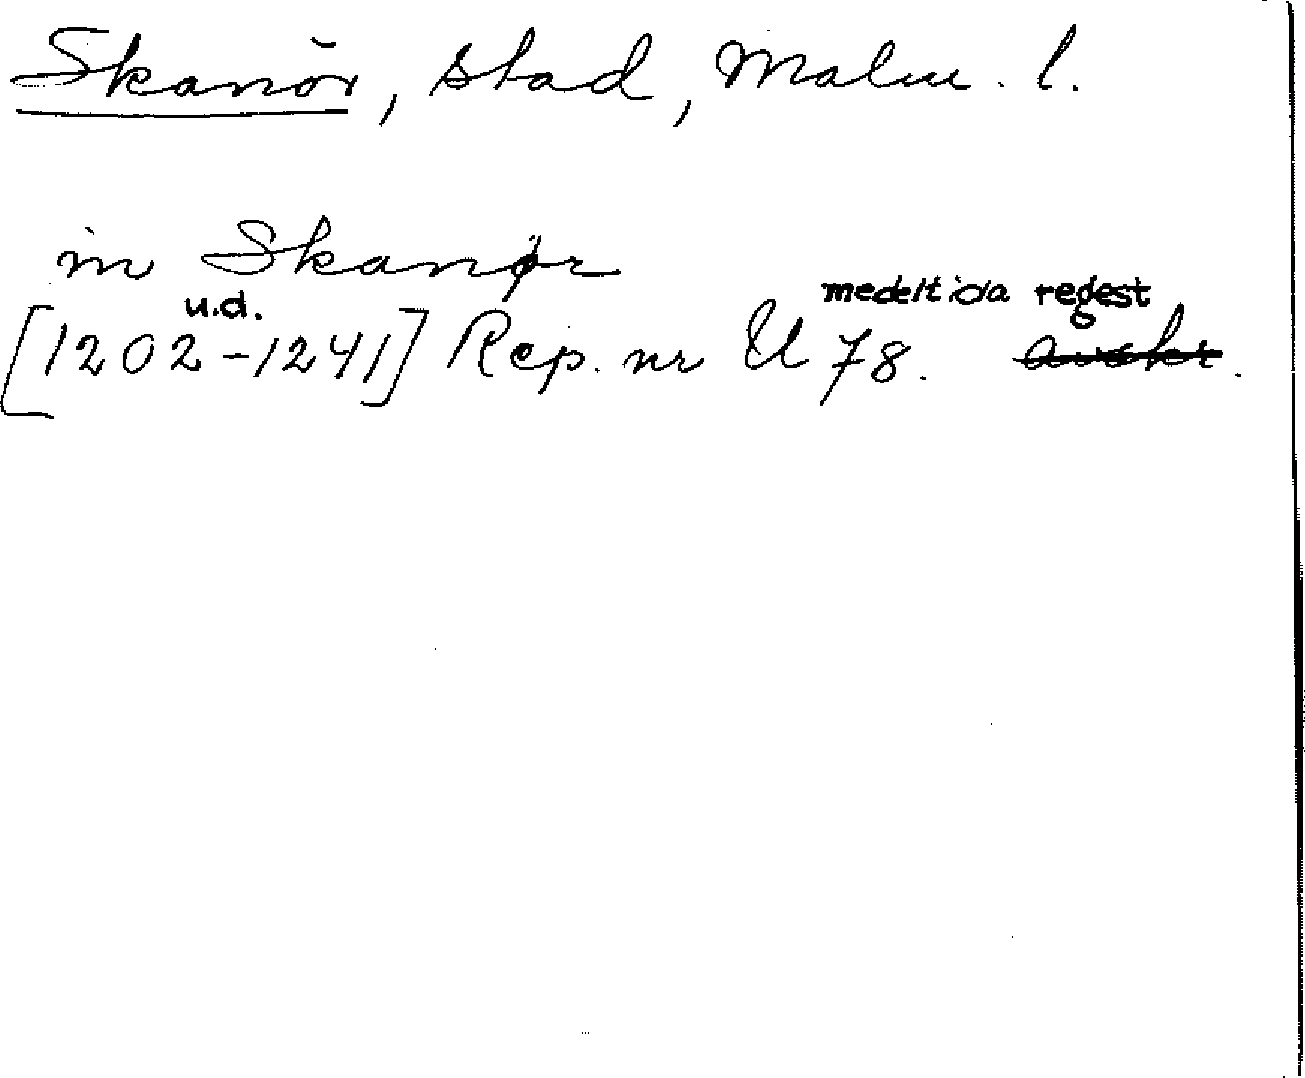 Skanör, stad, Malm. l.
in Skanør
u.d. medeltida regest
[1202-1241] Rep. nr U 78. avskr.